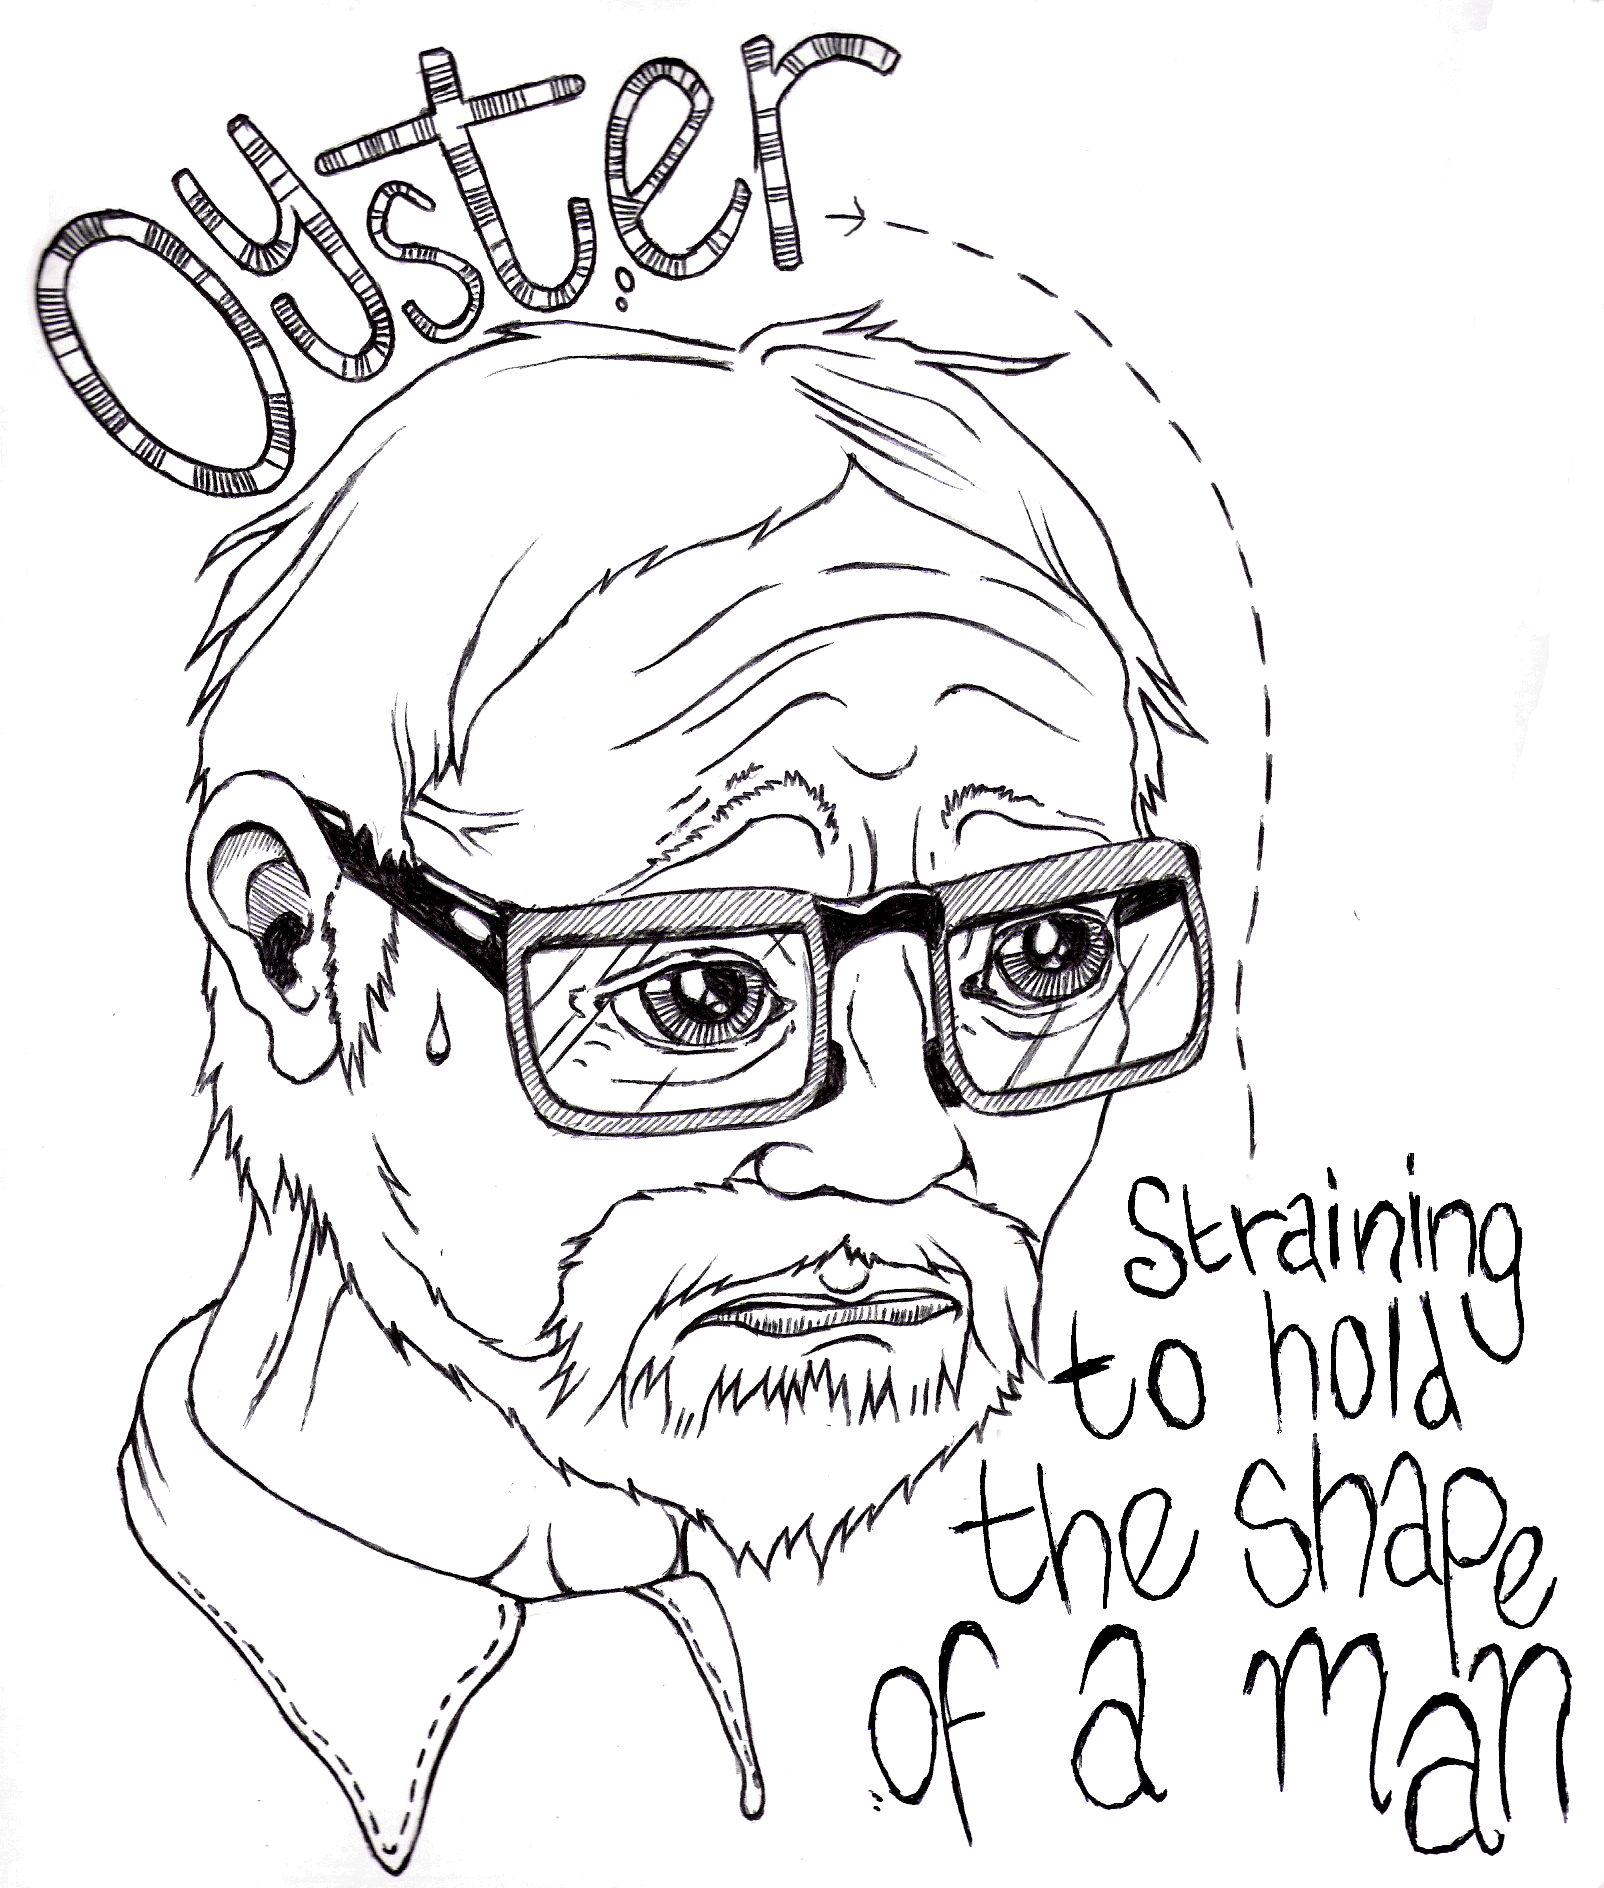 Oyster
Straining
to hold
the shape
of a man